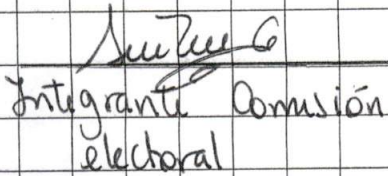 Integrante Comisión
electoral